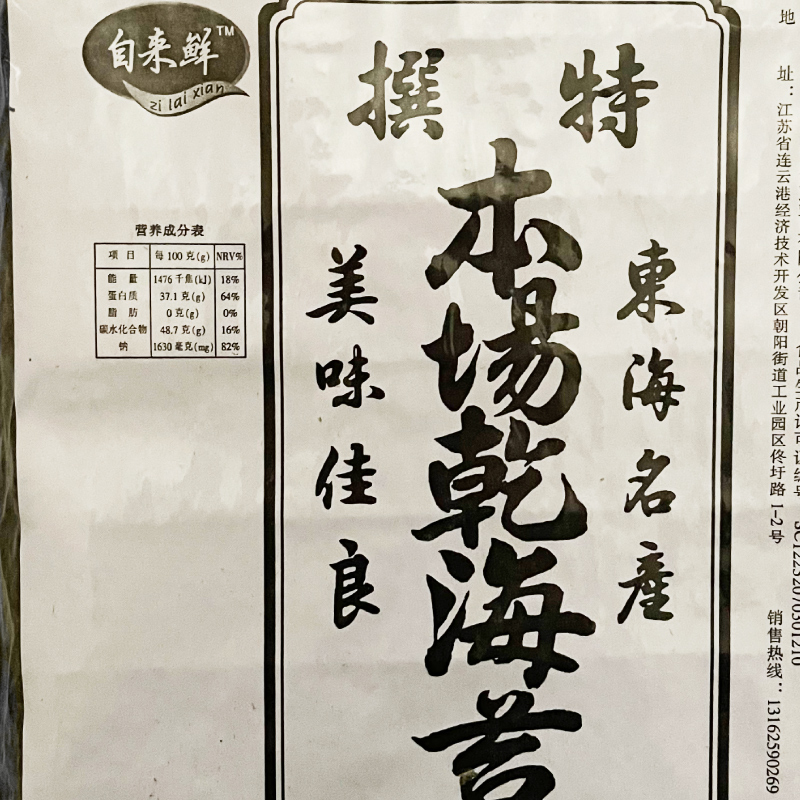 自来鲜™
zi lai xian
撰 特
本場乾海苔
東海名產
美味佳良
营养成分表
项 目 每 100 克(g) NRV%
能 量 1476 千焦(kJ) 18%
蛋白质 37.1 克(g) 64%
脂 肪 0 克(g) 0%
碳水化合物 48.7 克(g) 16%
钠 1630 毫克(mg) 82%
地 址：江苏省连云港经济技术开发区朝阳街道工业园区佟圩路 1-2 号
销售热线：13162590269